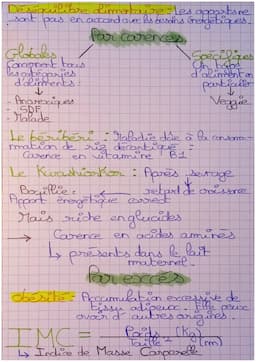 Déséquilibre alimentaire : Les apports ne
sont pas en accord avec les besoins énergétiques.
Par carences
Globales
Comprend tous
les catégories
d'aliments
- Anorexiques
- SDF
- Malade
Spécifiques
Un type
d'aliment en
particulier
Veggie
Le béribéri : Maladie dûe à la consom-
mation de riz décortiqué :
Carence en vitamine B1
Le Kwashiorkor : Après sevrage
Bouillie : retard de croissance
Apport énergétique correct
Mais riche en glucides
→ Carence en acides aminés
↳ présents dans le lait
maternel.
Par excès
Obésité : Accumulation excessive de
tissu adipeux. Elle peux
avoir d'autres origines.
IMC = Poids (kg)
Taille² (m)
↳ Indice de Masse Corporelle